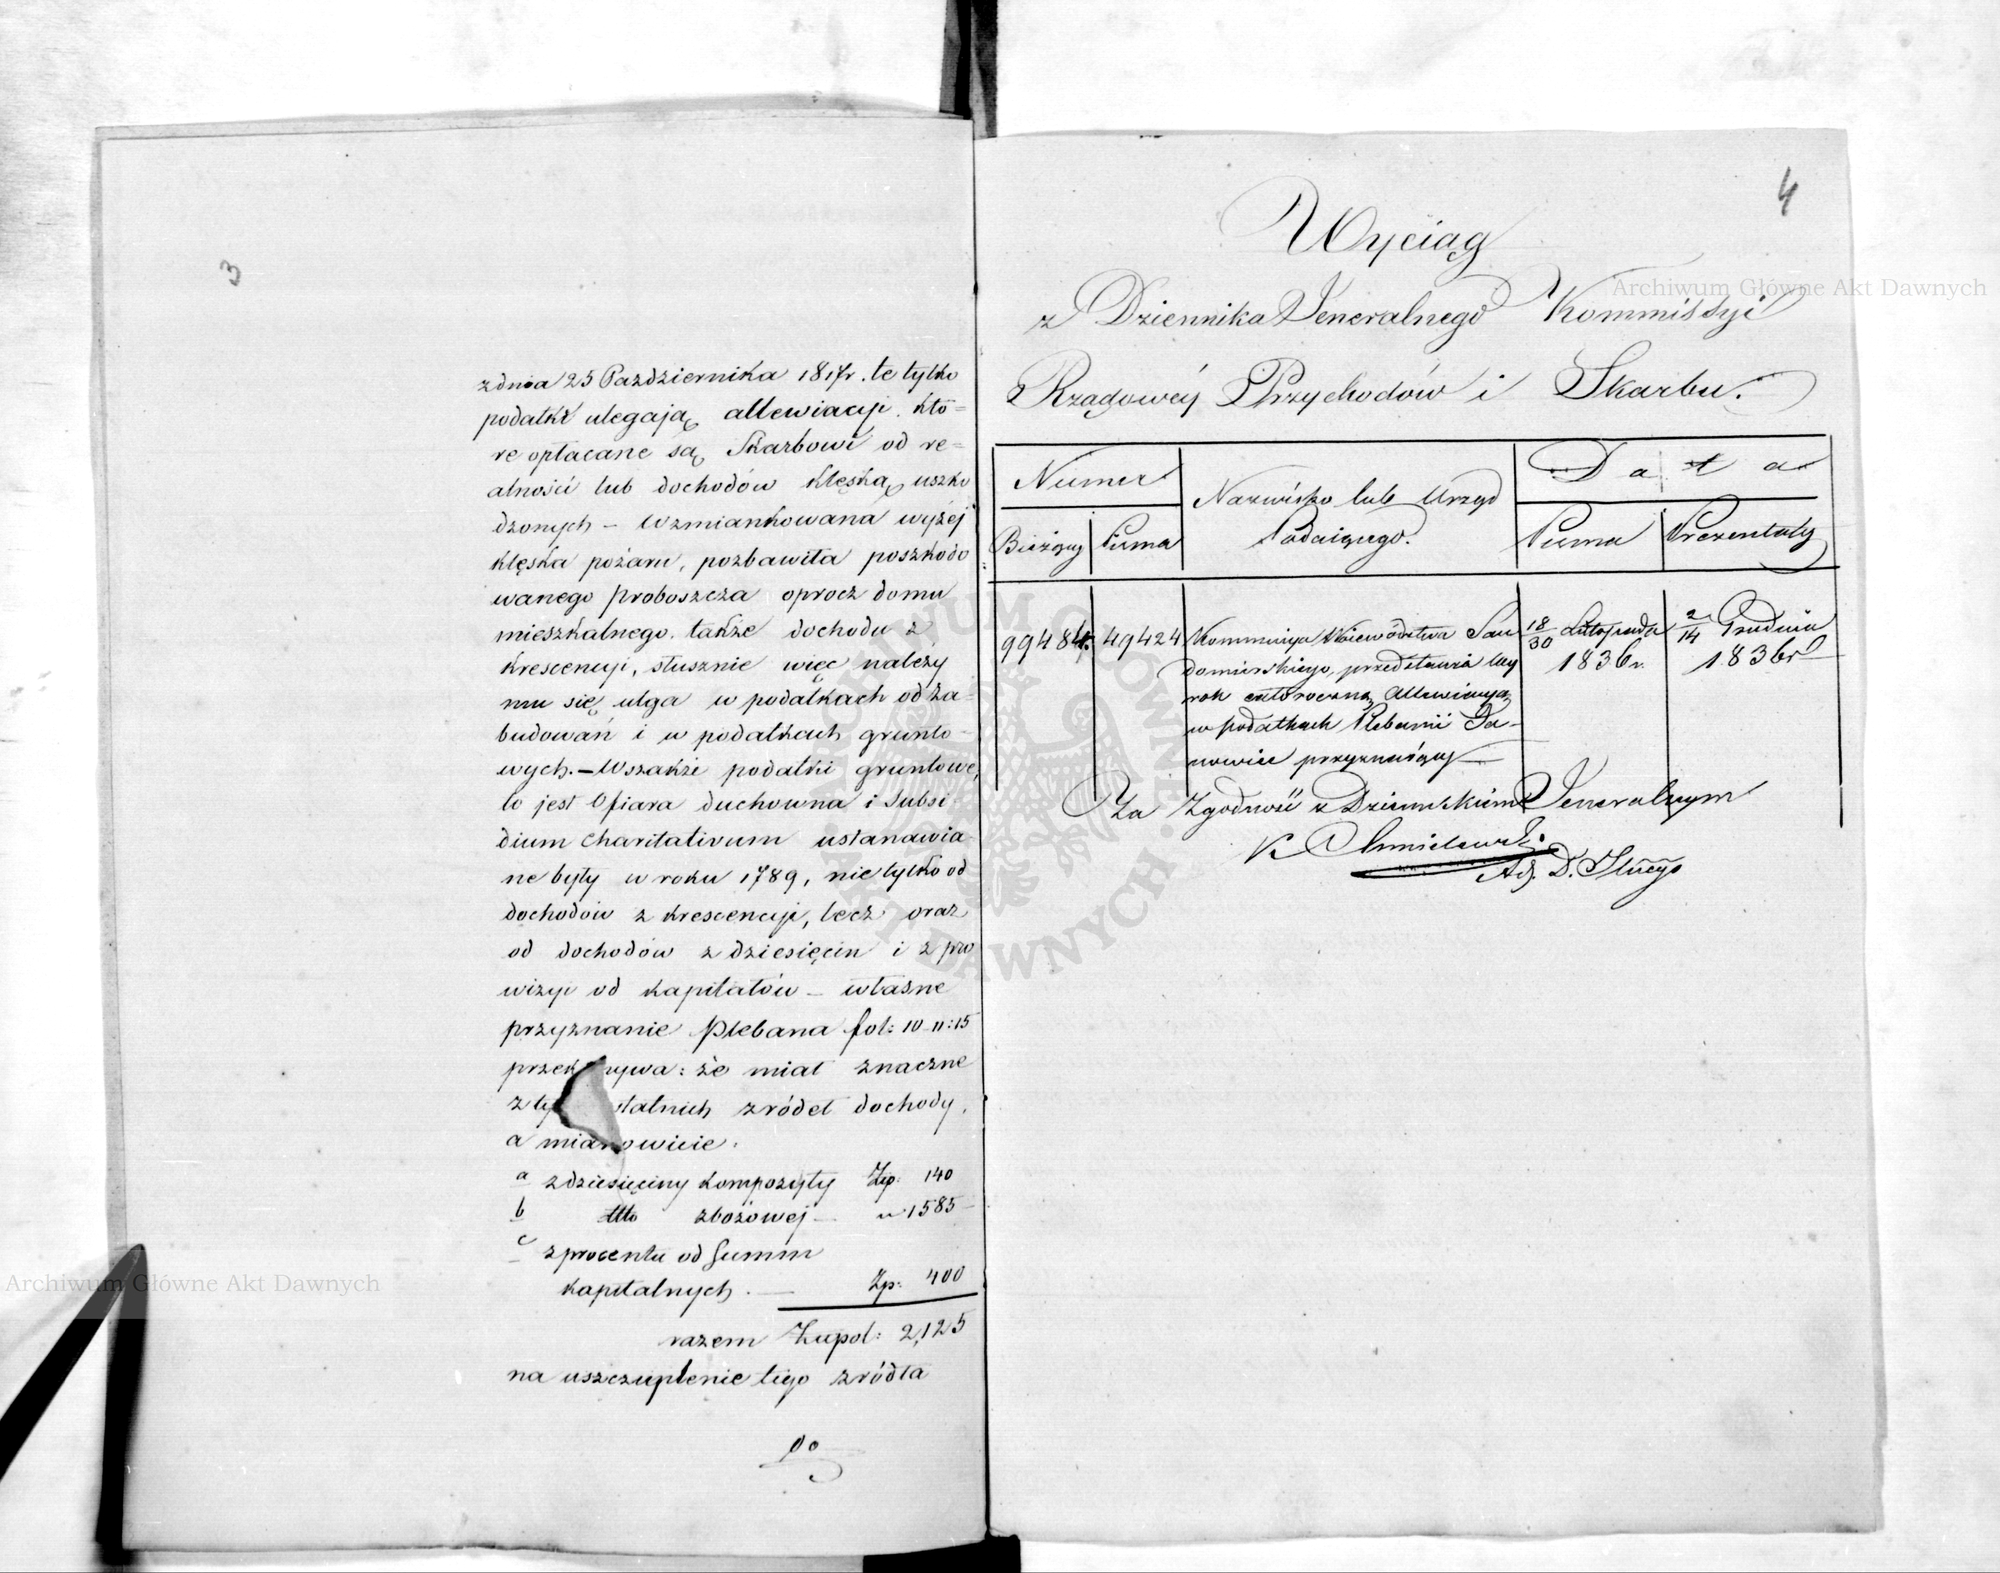 3
z dnia 25 Października 1817r. te tylko
podatki ulegają allewiacyi. któ=
re opłacane są Skarbowi od re=
alności lub dochodów klęską uszko
dzonych – Wzmiankowana wyżej
klęska pożaru, pozbawiła poszkodo
wanego proboszcza oprócz domu
mieszkalnego. także dochodu z
krescencyi, słusznie więc należy
mu się ulga w podatkach od za-
budowań i w podatkach grunto-
wych. – Wszakże podatki gruntowe,
to jest Ofiara duchowna i Subsi-
dium Charitativum ustanawia
ne były w roku 1789, nie tylko od
dochodów z krescencyi, lecz oraz
od dochodów z dziesięcin i z pro
wizyi od kapitałów – własne
przyznanie Plebana fol: 10-11:15
przek ywa: że miał znaczne
z ty statnich zródeł dochody,
a mianowicie.
a z dziesięciny kompozyty Złp: 140
b ditto zbożowej – „ 1585 –
c z procentu od Summ
kapitalnych. — Zp: 400
razem Złupol: 2,125
na uszczuplenie tego zródła
4
Wyciąg
z Dziennika Jeneralnego Kommissyi
Rządowéy Przychodów i Skarbu.
Numer
Nazwisko lub Urzęd
Podaiącego.
Data
Bieżący
Pisma
Pisma
Prezentaty
99484.
49424
Kommissya Woiewództwa San
domirskiego, przedstawia wy
rok całoroczną allewiacyą
w podatkach Plebanii Ja-
nowiec przyznaiący —
18/30 Listopada
1836r.
2/14 Grudnia
1836r
Za Zgodność z Dziennikiem Jeneralnym
K Chmielewski
Adj. D. Jlnego
Archiwum Główne Akt Dawnych
Archiwum Główne Akt Dawnych
ARCHIWUM GŁÓWNE AKT DAWNYCH